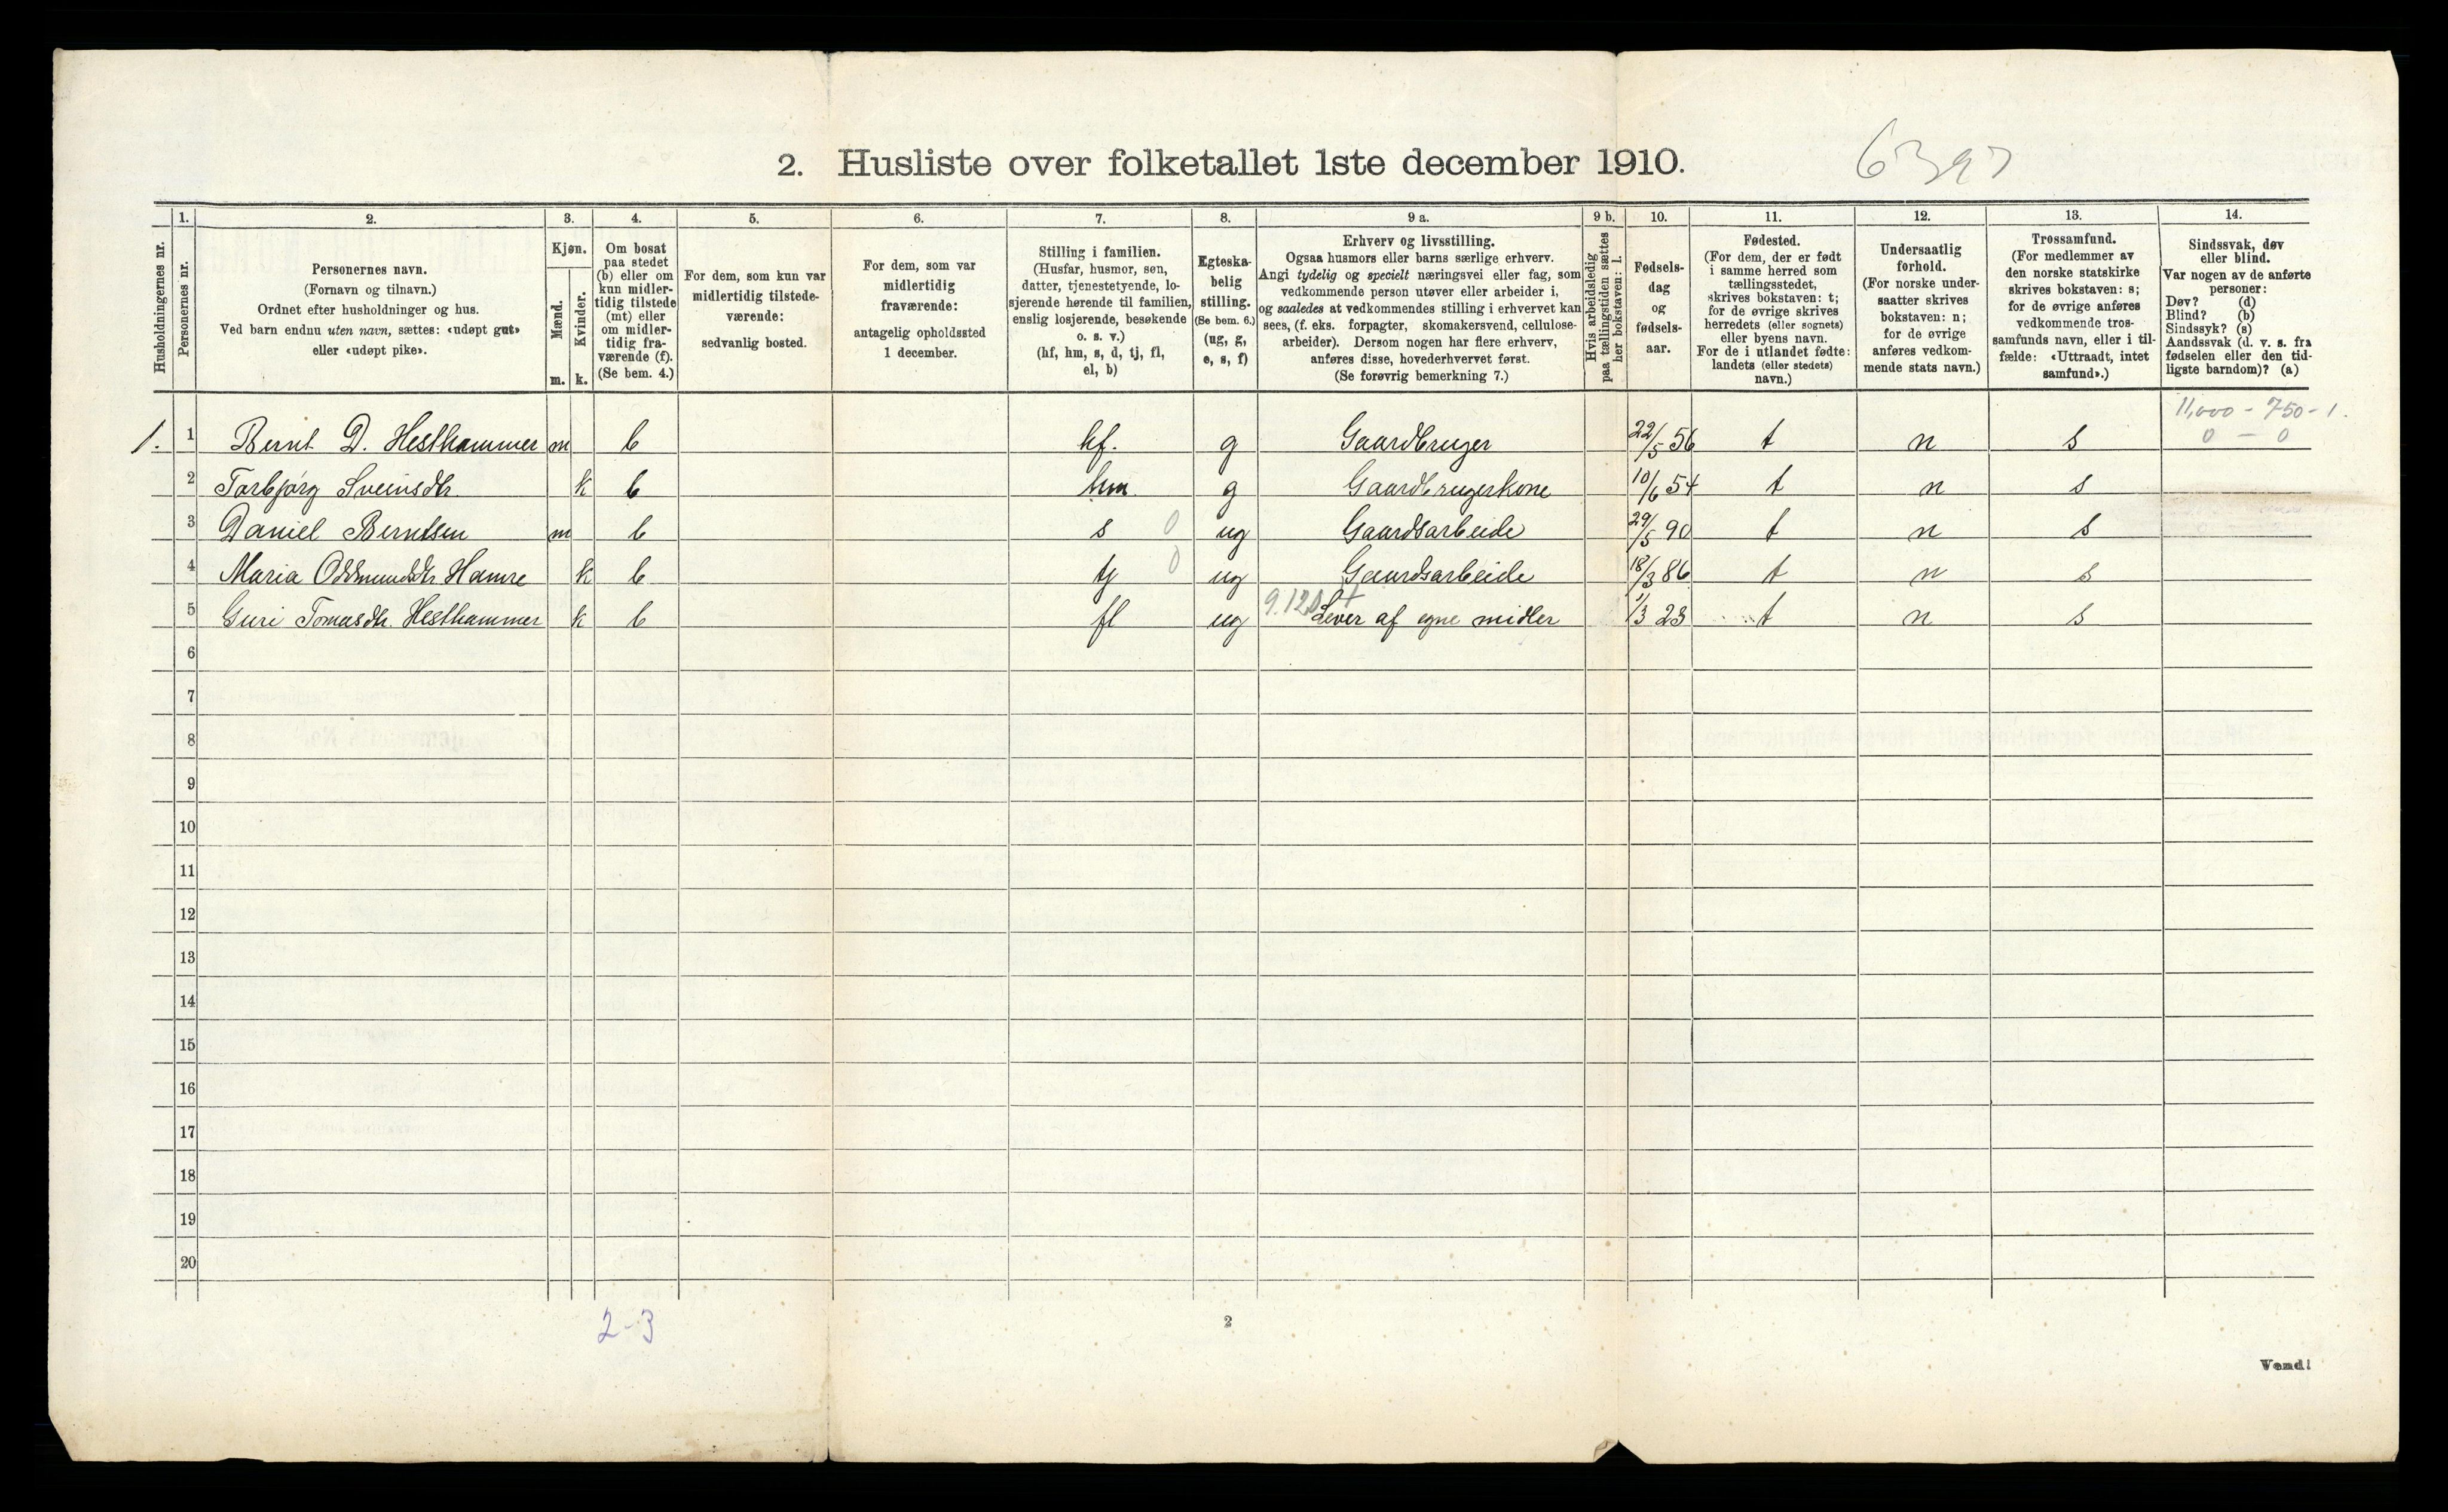 2. Husliste over folketallet 1ste december 1910.
6397
Husholdningernes nr.
1.
Personernes nr.
2.
Personernes navn.
(Fornavn og tilnavn.)
Ordnet efter husholdninger og hus.
Ved barn endnu uten navn, sættes: «udøpt gut»
eller «udøpt pike».
3.
Kjøn.
Mænd.
Kvinder.
m. k.
4.
Om bosat
paa stedet
(b) eller om
kun midler-
tidig tilstede
(mt) eller
om midler-
tidig fra-
værende (f).
(Se bem. 4.)
5.
For dem, som kun var
midlertidig tilstede-
værende:
sedvanlig bosted.
6.
For dem, som var
midlertidig
fraværende:
antagelig opholdssted
1 december.
7.
Stilling i familien.
(Husfar, husmor, søn,
datter, tjenestetyende, lo-
sjerende hørende til familien,
enslig losjerende, besøkende
o. s. v.)
(hf, hm, s, d, tj, fl,
el, b)
8.
Egteska-
belig
stilling.
(Se bem. 6.)
(ug, g,
e, s, f)
9 a.
Erhverv og livsstilling.
Ogsaa husmors eller barns særlige erhverv.
Angi tydelig og specielt næringsvei eller fag, som
vedkommende person utøver eller arbeider i,
og saaledes at vedkommendes stilling i erhvervet kan
sees, (f. eks. forpagter, skomakersvend, cellulose-
arbeider). Dersom nogen har flere erhverv,
anføres disse, hovederhvervet først.
(Se forøvrig bemerkning 7.)
9 b.
Hvis arbeidsledig
paa tællingstiden sættes
her bokstaven: l.
10.
Fødsels-
dag
og
fødsels-
aar.
11.
Fødested.
(For dem, der er født
i samme herred som
tællingsstedet,
skrives bokstaven: t;
for de øvrige skrives
herredets (eller sognets)
eller byens navn.
For de i utlandet fødte:
landets (eller stedets)
navn.)
12.
Undersaatlig
forhold.
(For norske under-
saatter skrives
bokstaven: n;
for de øvrige
anføres vedkom-
mende stats navn.)
13.
Trossamfund.
(For medlemmer av
den norske statskirke
skrives bokstaven: s;
for de øvrige anføres
vedkommende tros-
samfunds navn, eller i til-
fælde: «Uttraadt, intet
samfund».)
14.
Sindssvak, døv
eller blind.
Var nogen av de anførte
personer:
Døv? (d)
Blind? (b)
Sindssyk? (s)
Aandssvak (d. v. s. fra
fødselen eller den tid-
ligste barndom)? (a)
11,000 - 750 - 1.
0 — 0
1. 1 Bernt D. Hesthammer m b hf. g Gaardbruger 22/5 56 t n s
2 Torbjørg Sveinsdtr. k b hm g Gaardbrugerkone 10/6 54 t n s
3 Daniel Berntsen m b s 0 ug Gaardsarbeide 29/5 90 t n s
4 Maria Oddmundsdtr Hamre k b tj 0 ug Gaardsarbeide 18/3 86 t n s
5 Guri Tomasdtr. Hesthammer k b fl ug 9.120 Lever af egne midler 1/3 23 t n s
6
7
8
9
10
11
12
13
14
15
16
17
18
19
20
2-3
2
Vend!